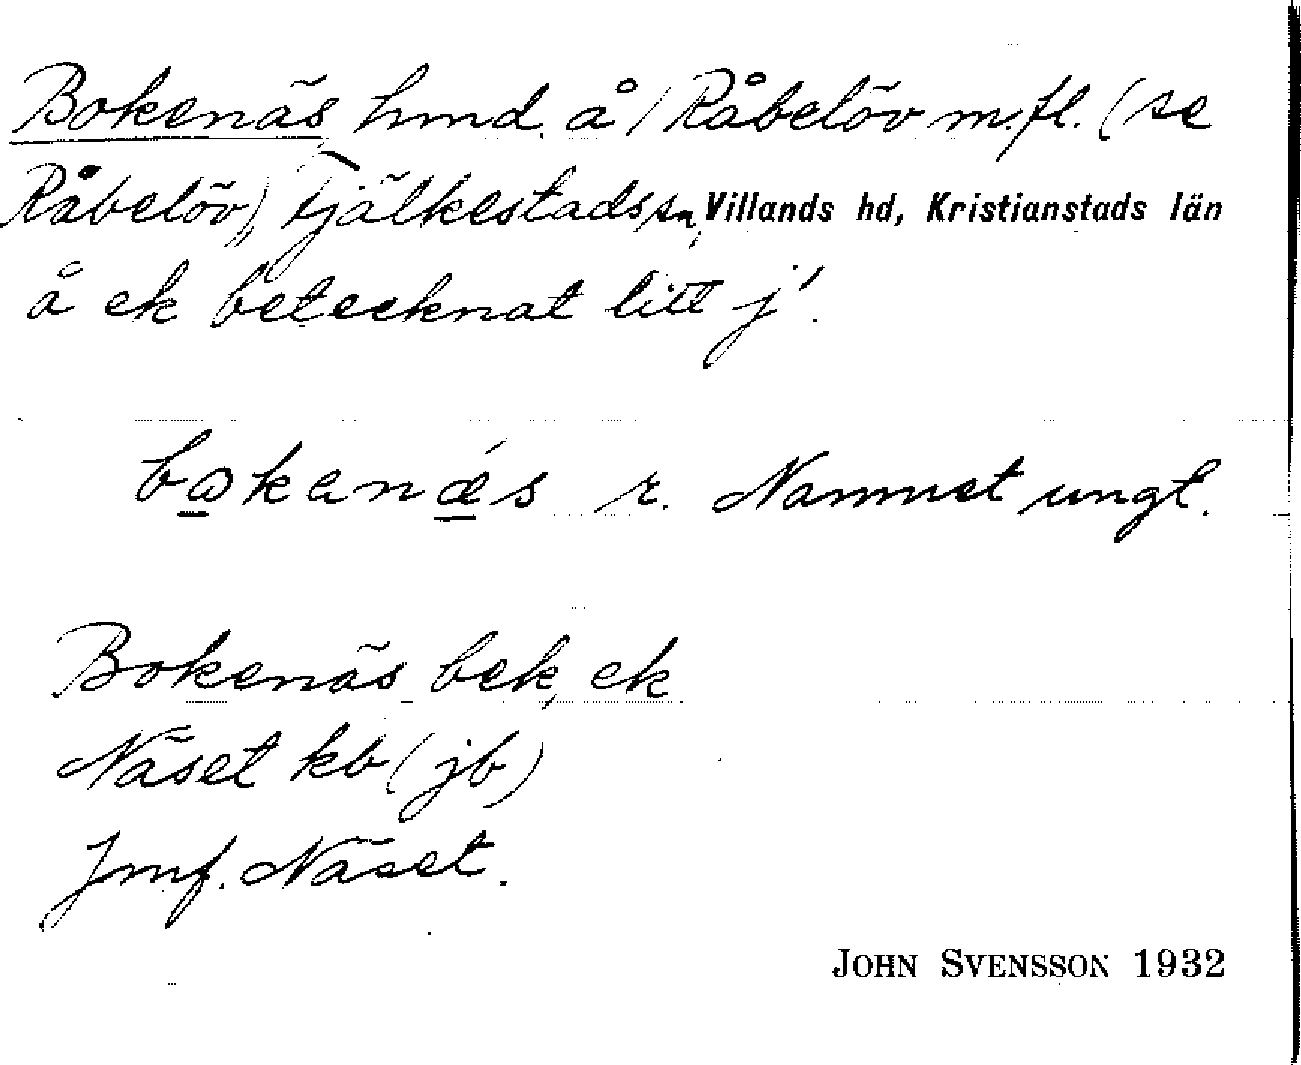 Bokenäs hmd. å / Råbelöv m.fl. (se
Råbelöv), Fjälkestads sn, Villands hd, Kristianstads län
å ek betecknat litt j'.
bakanǽs r. Namnet ungt.
Bokenäs bek, ek
Näset kb (jb)
Jmf. Näset.
JOHN SVENSSON 1932